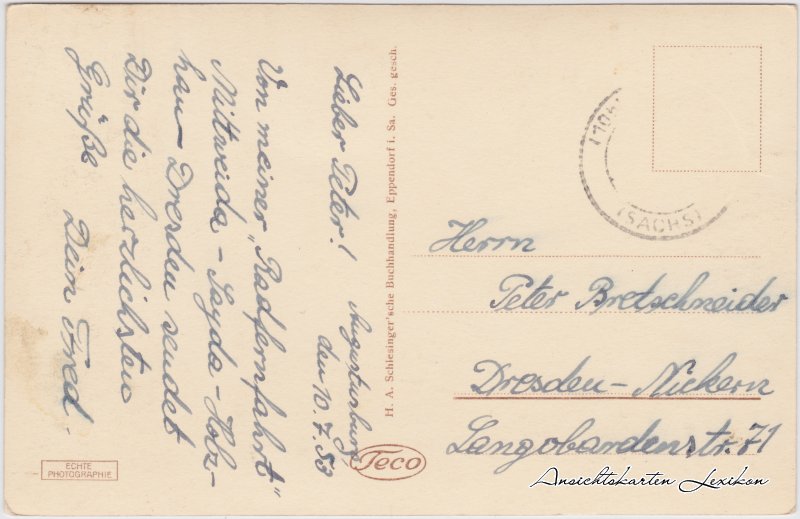 Lieber Peter!
Augustusburg
den 10.7.53
Von meiner "Radfernfahrt"
Mittweida - Sayda - Holz-
hau - Dresden sendet
Dir die herzlichsten
Grüße Dein Fred.
H. A. Schlesinger'sche Buchhandlung, Eppendorf i. Sa. Ges. gesch.
Teco
ECHTE
PHOTOGRAPHIE
(SACHS)
Herrn
Peter Bretschneider
Dresden - Nickern
Langobardenstr. 71
Ansichtskarten Lexikon